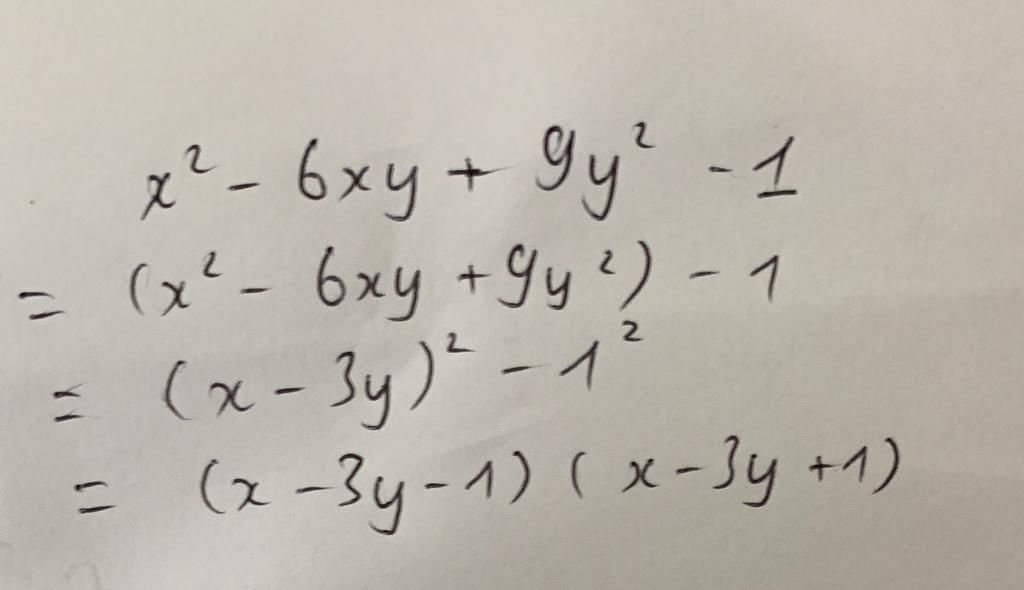 x² - 6xy + 9y² - 1
= (x² - 6xy + 9y²) - 1
= (x - 3y)² - 1²
= (x - 3y - 1) (x - 3y + 1)